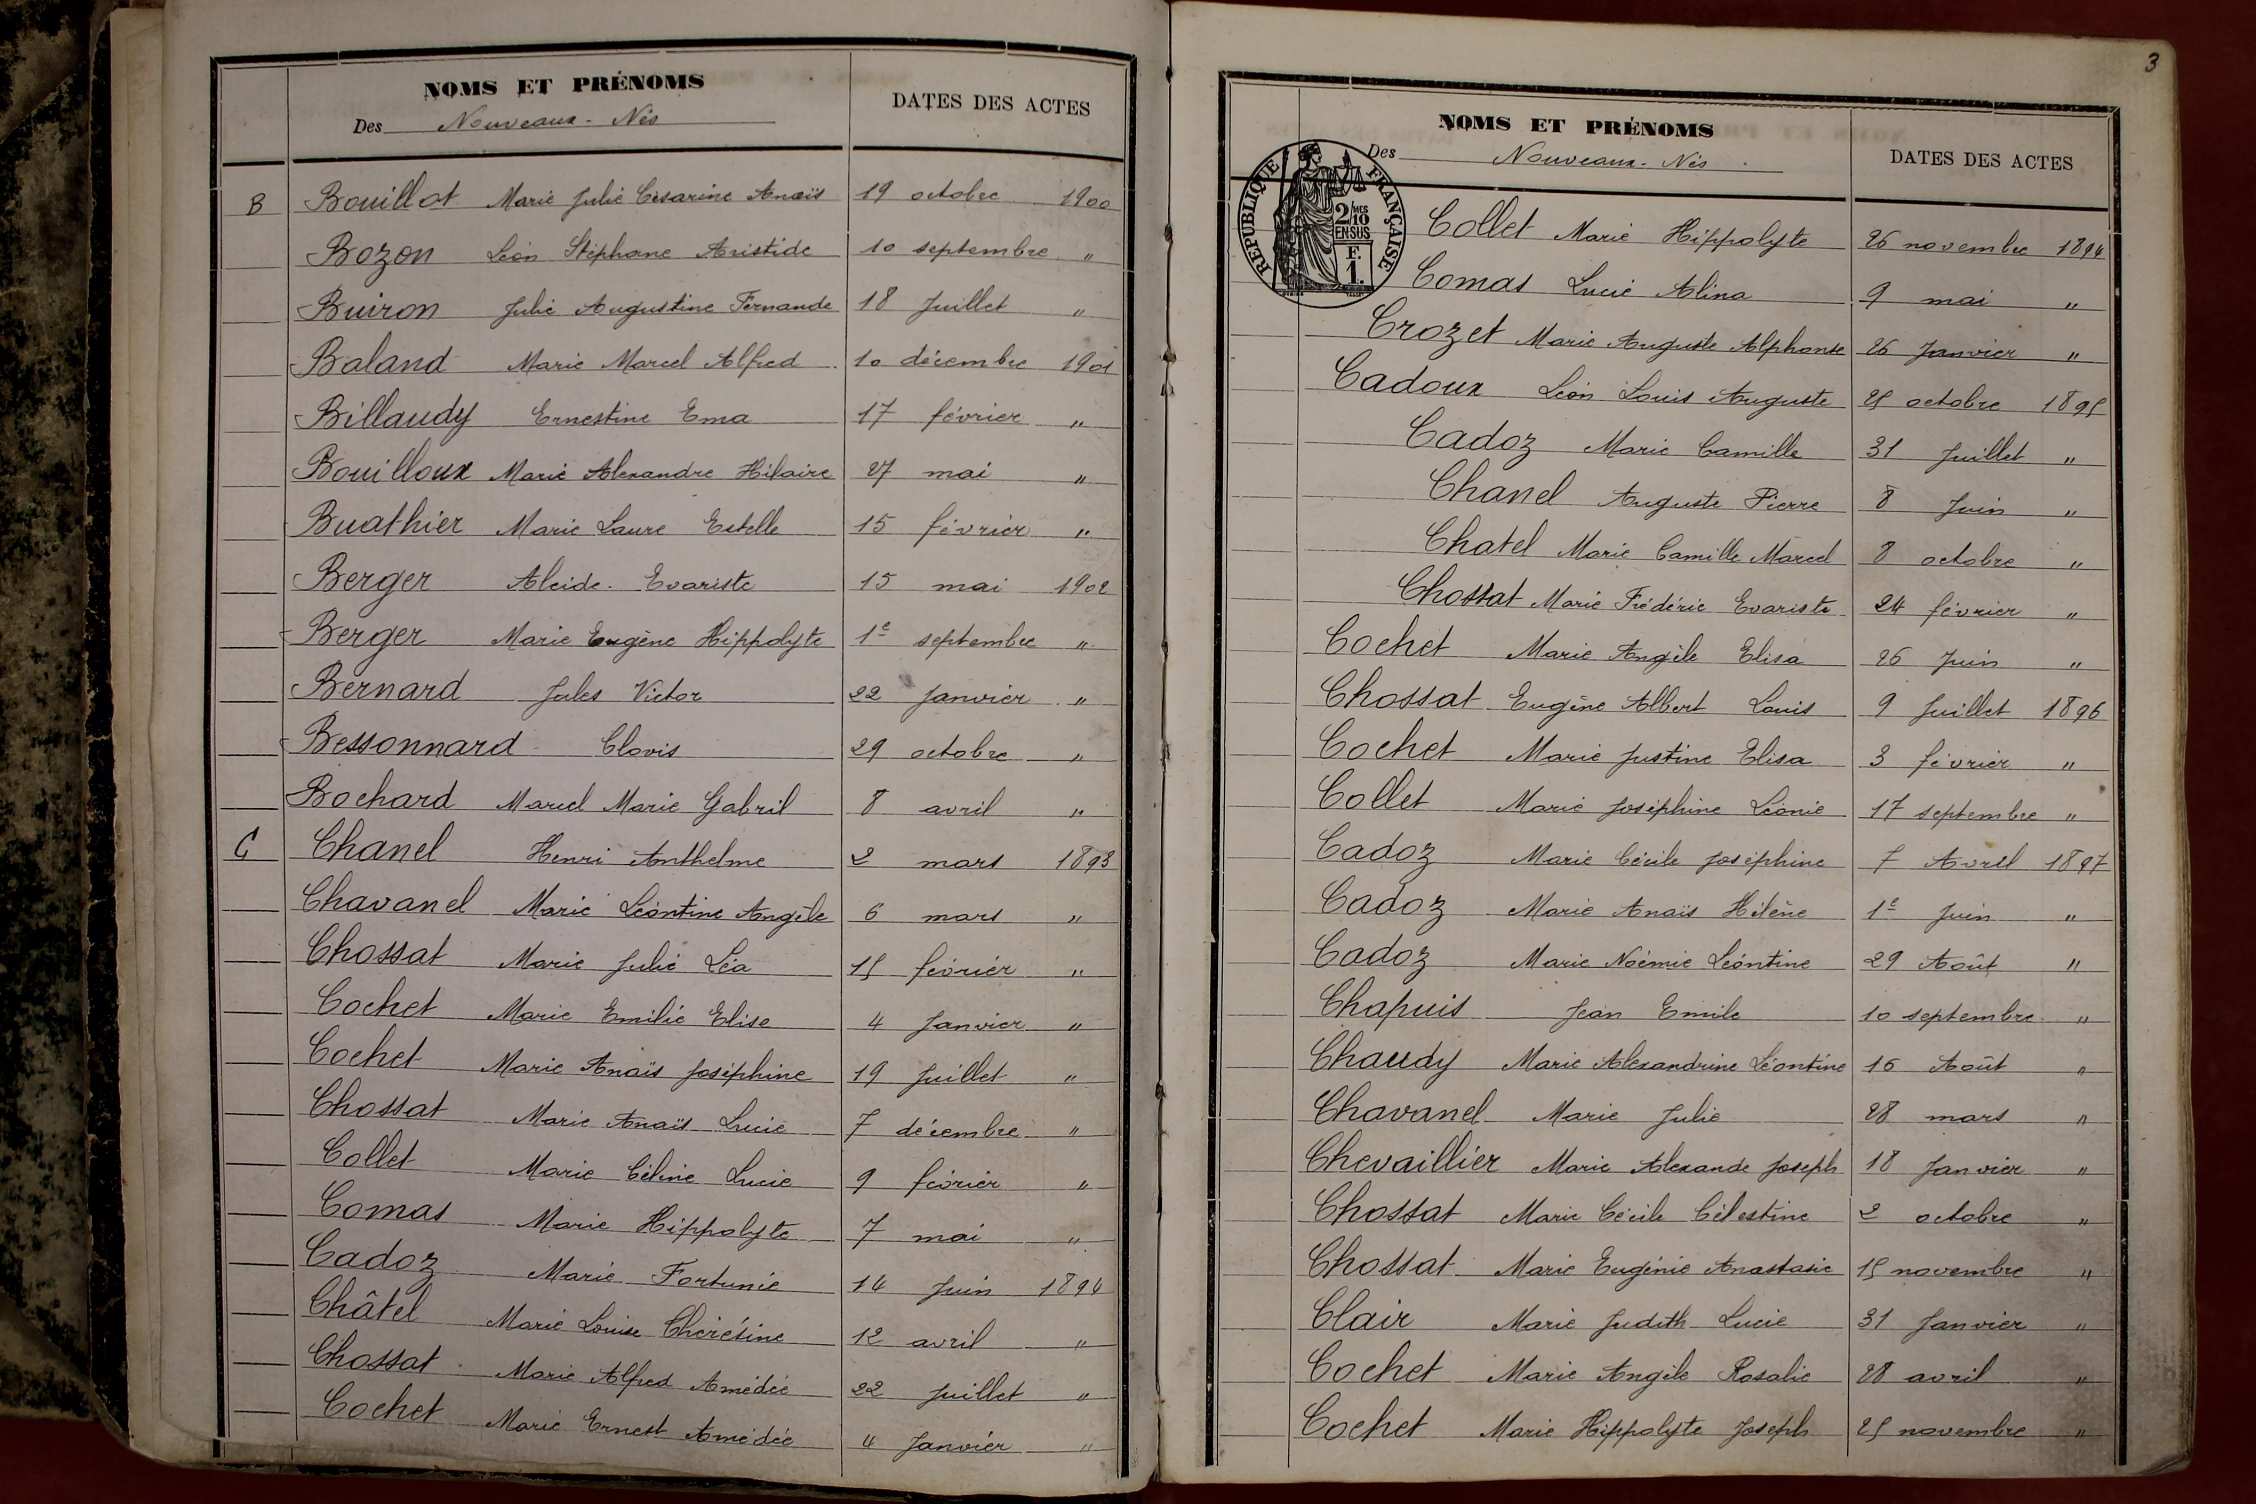 NOMS ET PRÉNOMS
Des Nouveaux-Nés
DATES DES ACTES
B Bouillot Marie Julie Césarine Anaïs 19 octobre 1900
Bozon Léon Stéphane Aristide 10 septembre "
Buiron Julie Augustine Fernande 18 Juillet "
Baland Marie Marcel Alfred 10 décembre 1901
Billaudy Ernestine Ema 17 février "
Bouilloux Marie Alexandre Hilaire 27 mai "
Buathier Marie Laure Estelle 15 février "
Berger Alcide Evariste 15 mai 1902
Berger Marie Eugène Hippolyte 1e septembre "
Bernard Jules Victor 22 Janvier "
Bessonnard Clovis 29 octobre "
Bochard Marcel Marie Gabril 8 avril "
C Chanel Henri Anthelme 2 mars 1893
Chavanel Marie Léontine Angèle 6 mars "
Chossat Marie Julie Léa 15 février "
Cochet Marie Emilie Elise 4 Janvier "
Cochet Marie Anaïs Joséphine 19 Juillet "
Chossat Marie Anaïs Lucie 7 décembre "
Collet Marie Céline Lucie 9 février "
Comas Marie Hippolyte 7 mai "
Cadoz Marie Fortunie 14 Juin 1894
Châtel Marie Louise 12 avril "
Chossat Marie Alfred Amédée 22 Juillet "
Cochet Marie Ernest Amédée 4 Janvier "
3
NOMS ET PRÉNOMS
Des Nouveaux-Nés
DATES DES ACTES
RÉPUBLIQUE FRANÇAISE
2/10 MES
EN SUS
F.
1.
Collet Marie Hippolyte 26 novembre 1894
Comas Lucie Alina 9 mai "
Crozet Marie Auguste Alphonse 26 Janvier "
Cadoux Léon Louis Auguste 25 octobre 1895
Cadoz Marie Camille 31 Juillet "
Chanel Auguste Pierre 8 Juin "
Chatel Marie Camille Marcel 8 octobre "
Chossat Marie Frédéric Evariste 24 février "
Cochet Marie Angèle Elisa 26 Juin "
Chossat Eugène Albert Louis 9 Juillet 1896
Cochet Marie Justine Elisa 3 février "
Collet Marie Joséphine Léonie 17 septembre "
Cadoz Marie Cécile Joséphine 7 Avril 1897
Cadoz Marie Anaïs Hélène 1e Juin "
Cadoz Marie Noémie Léontine 29 Août "
Chapuis Jean Emile 10 septembre "
Chaudy Marie Alexandrine Léontine 16 Août "
Chavanel Marie Julie 28 mars "
Chevaillier Marie Alexande Joseph 18 Janvier "
Chossat Marie Cécile Célestine 2 octobre "
Chossat Marie Eugénie Anastasie 15 novembre "
Clair Marie Judith Lucie 31 Janvier "
Cochet Marie Angèle Rosalie 28 avril "
Cochet Marie Hippolyte Joseph 25 novembre "